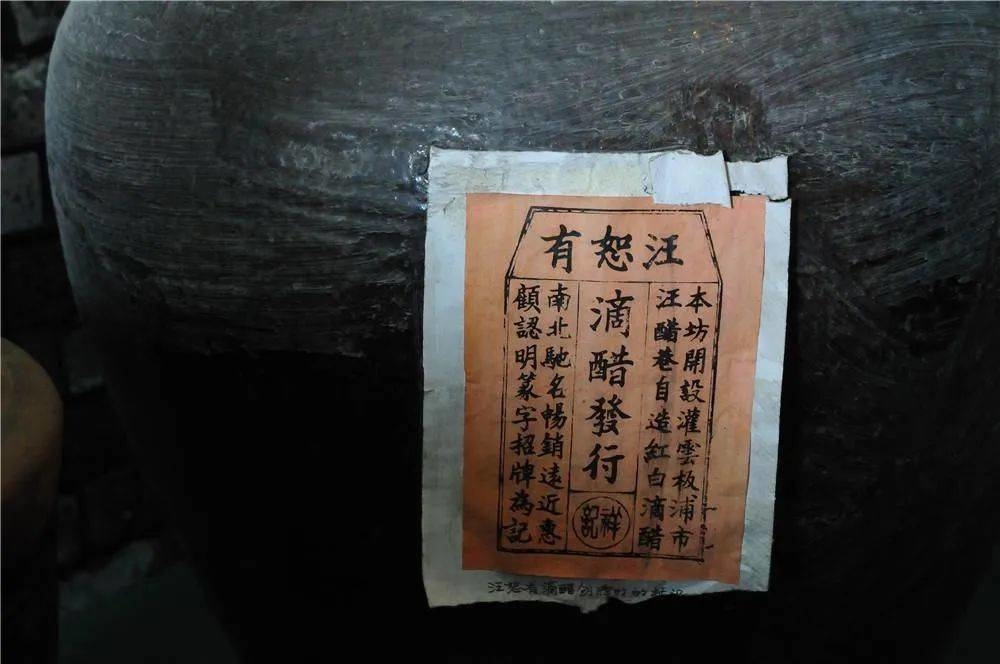 汪恕有
本坊開設灌雲板浦市
汪醋巷自造紅白滴醋
滴醋發行
祥記
南北馳名暢銷遠近惠
顧認明篆字招牌為記
汪恕有滴醋創牌時的標識